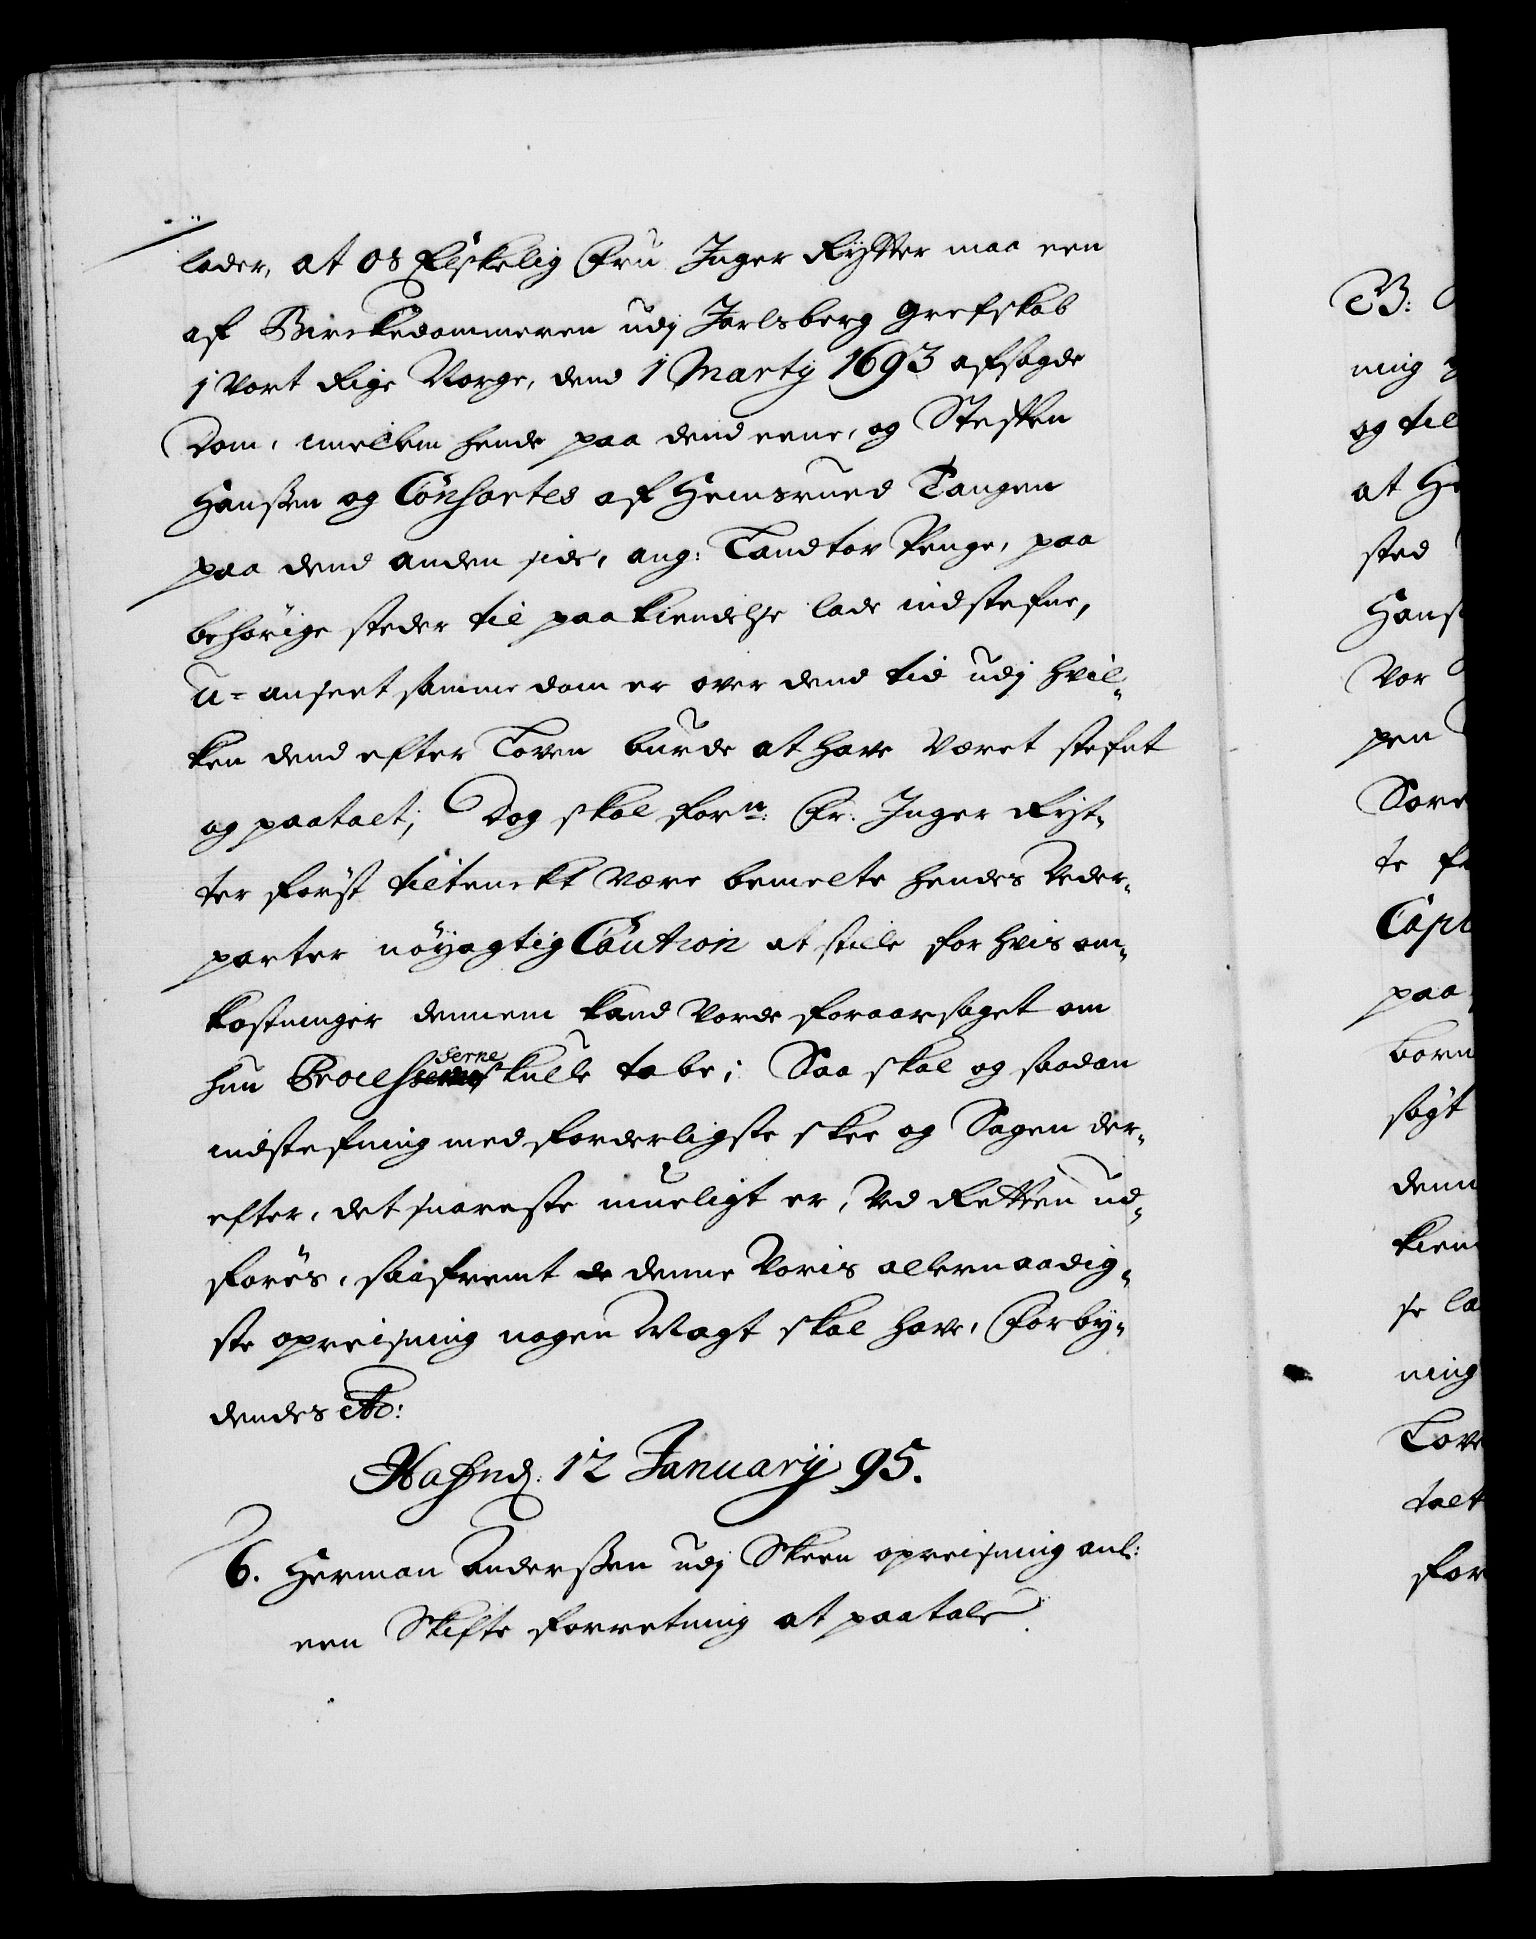 lader, at os Elskelig Fru Inger Rytter maa een
af Birckedommeren udj Jarlsberg Grefskab
j Vort Rige Norge, dend 1 Martij 1693 afsagde
Dom, imellem hende paa dend eene, og Steffen
Hanßen og Consortes af Hemsrued Tangen
paa dend anden side, ang: Landtov Penge, paa
behörige steder til paakiendelse lade indstefne,
U-anseet samme dom er over dend tid udj hvil-
ken dend efter Loven burde at have Været stefnt
og paatalt; Dog skal forn: Fr. Inger Ryt-
ter först tiltenckt Være bemelte hendes Veder-
parter nöyagtig Caution at stille for hvis om-
kostninger dennem kand Vorde foraarsaget om
hun Processerne skulle tabe; Saa skal og saadan
indstefning med forderligste skee og Sagen der-
efter, det snareste mueligt er, Ved Retten ud-
föres, saafremt denne Voris allernaadig-
ste opreisning nogen Magt skal have, Forby-
dendes etc:
Hafnd: 12 Januarij 95.
6. Herman Anderßen udj Skeen opreisning anl:
een Skifte forretning at paatale
B:
ning
og til
at He
sted
Hans
Vor
pen
Sore
te
Capt
paa
born
søgt
denn
kien
se la
ning
Love
talt
for